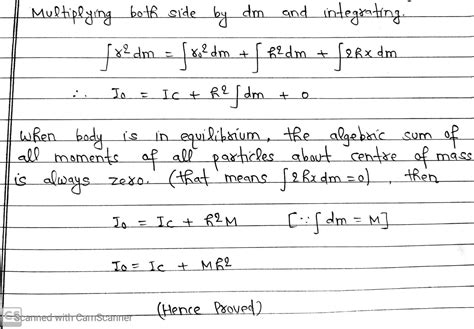 Multiplying both side by dm and integrating.
∫r² dm = ∫r₀² dm + ∫h² dm + ∫2hx dm
∴ Io = Ic + h² ∫dm + 0
When body is in equilibrium, the algebric sum of
all moments of all particles about centre of mass
is always zero. (that means ∫2hxdm = 0) , then
Io = Ic + h²M [∵ ∫dm = M]
Io = Ic + Mh²
(Hence Proved)
CS Scanned with CamScanner